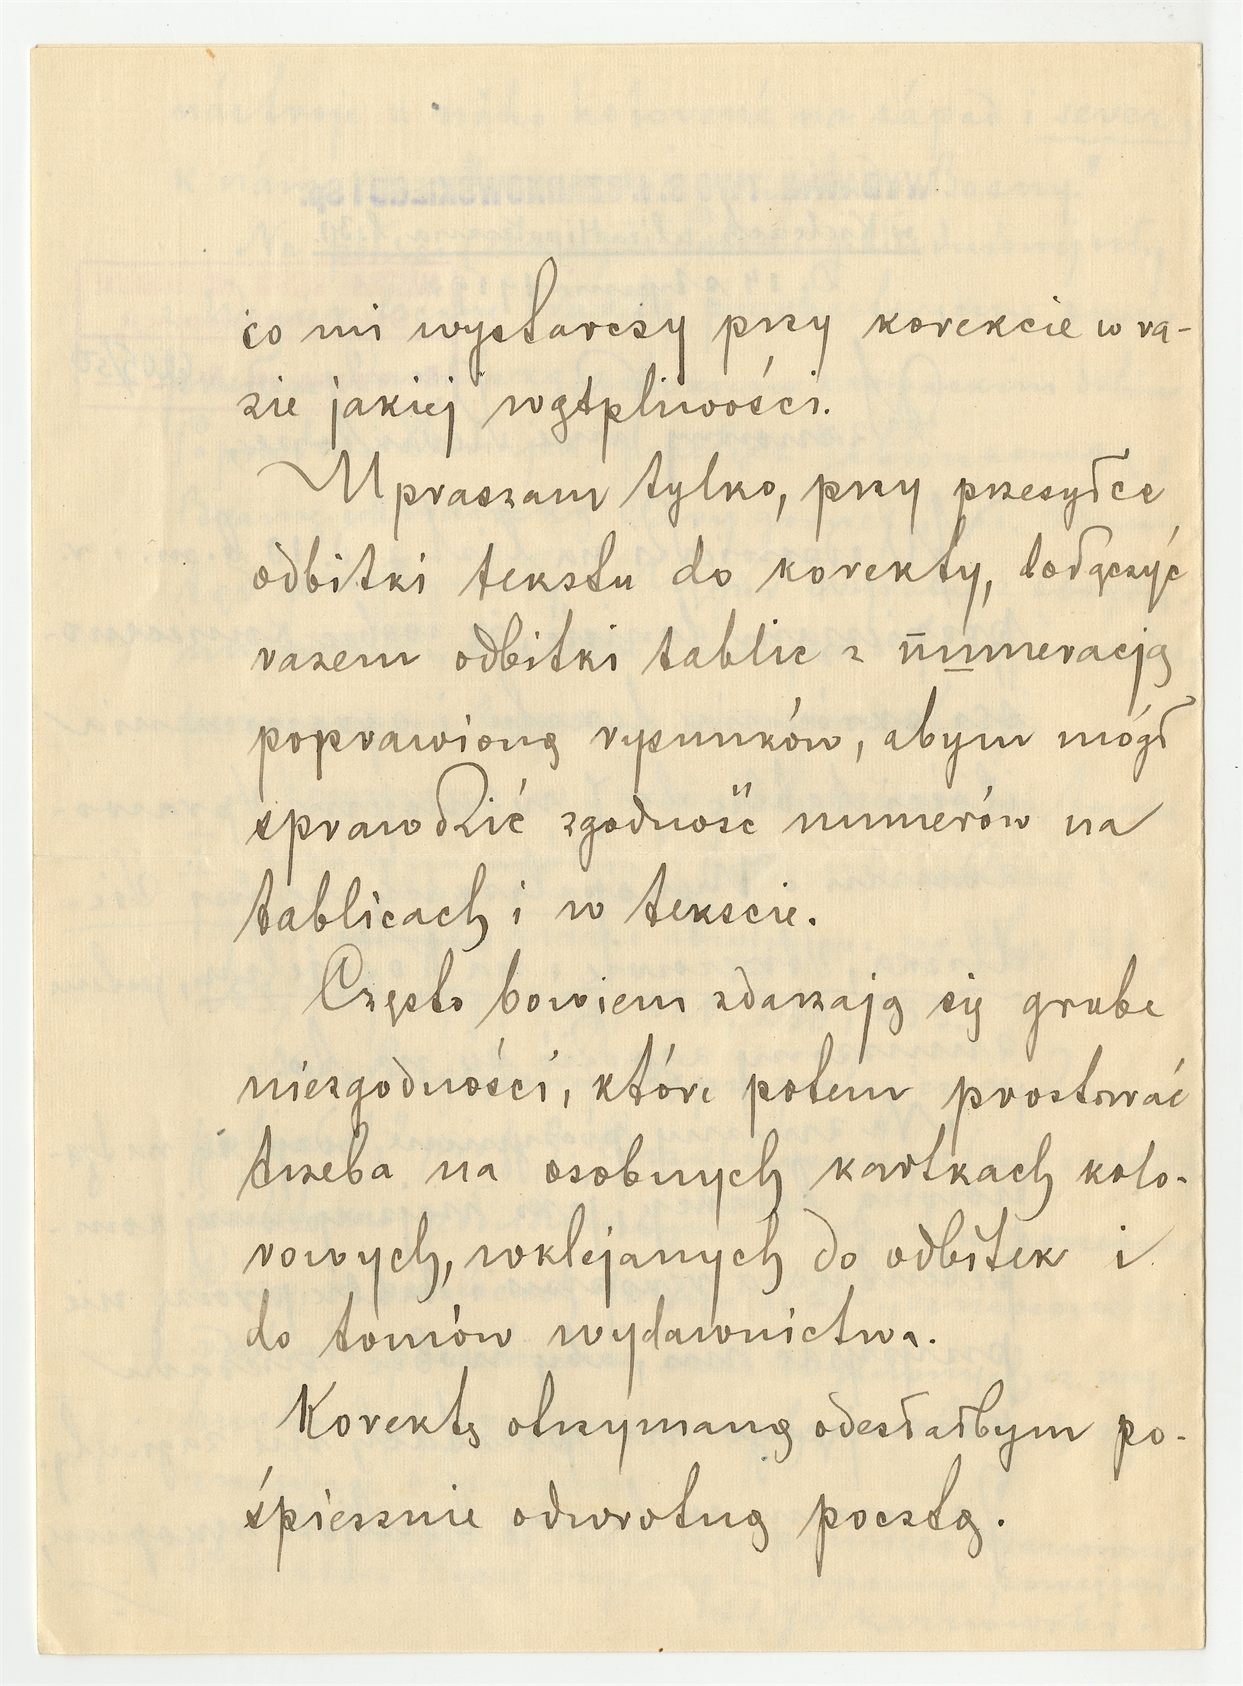 co mi wystarczy przy korekcie w ra-
zie jakiej wątpliwości.
Upraszam tylko, przy przesyłce
odbitki tekstu do korekty, dołączyć
razem odbitki tablic z numeracją
poprawioną rysunków, abym mógł
sprawdzić zgodność numerów na
tablicach i w tekscie.
Często bowiem zdarzają się grube
niezgodności, które potem prostować
trzeba na osobnych kartkach kolo-
rowych, wklejanych do odbitek i
do tomów wydawnictwa.
Korektę otrzymaną odesłałbym po-
śpiesznie odwrotną pocztą.